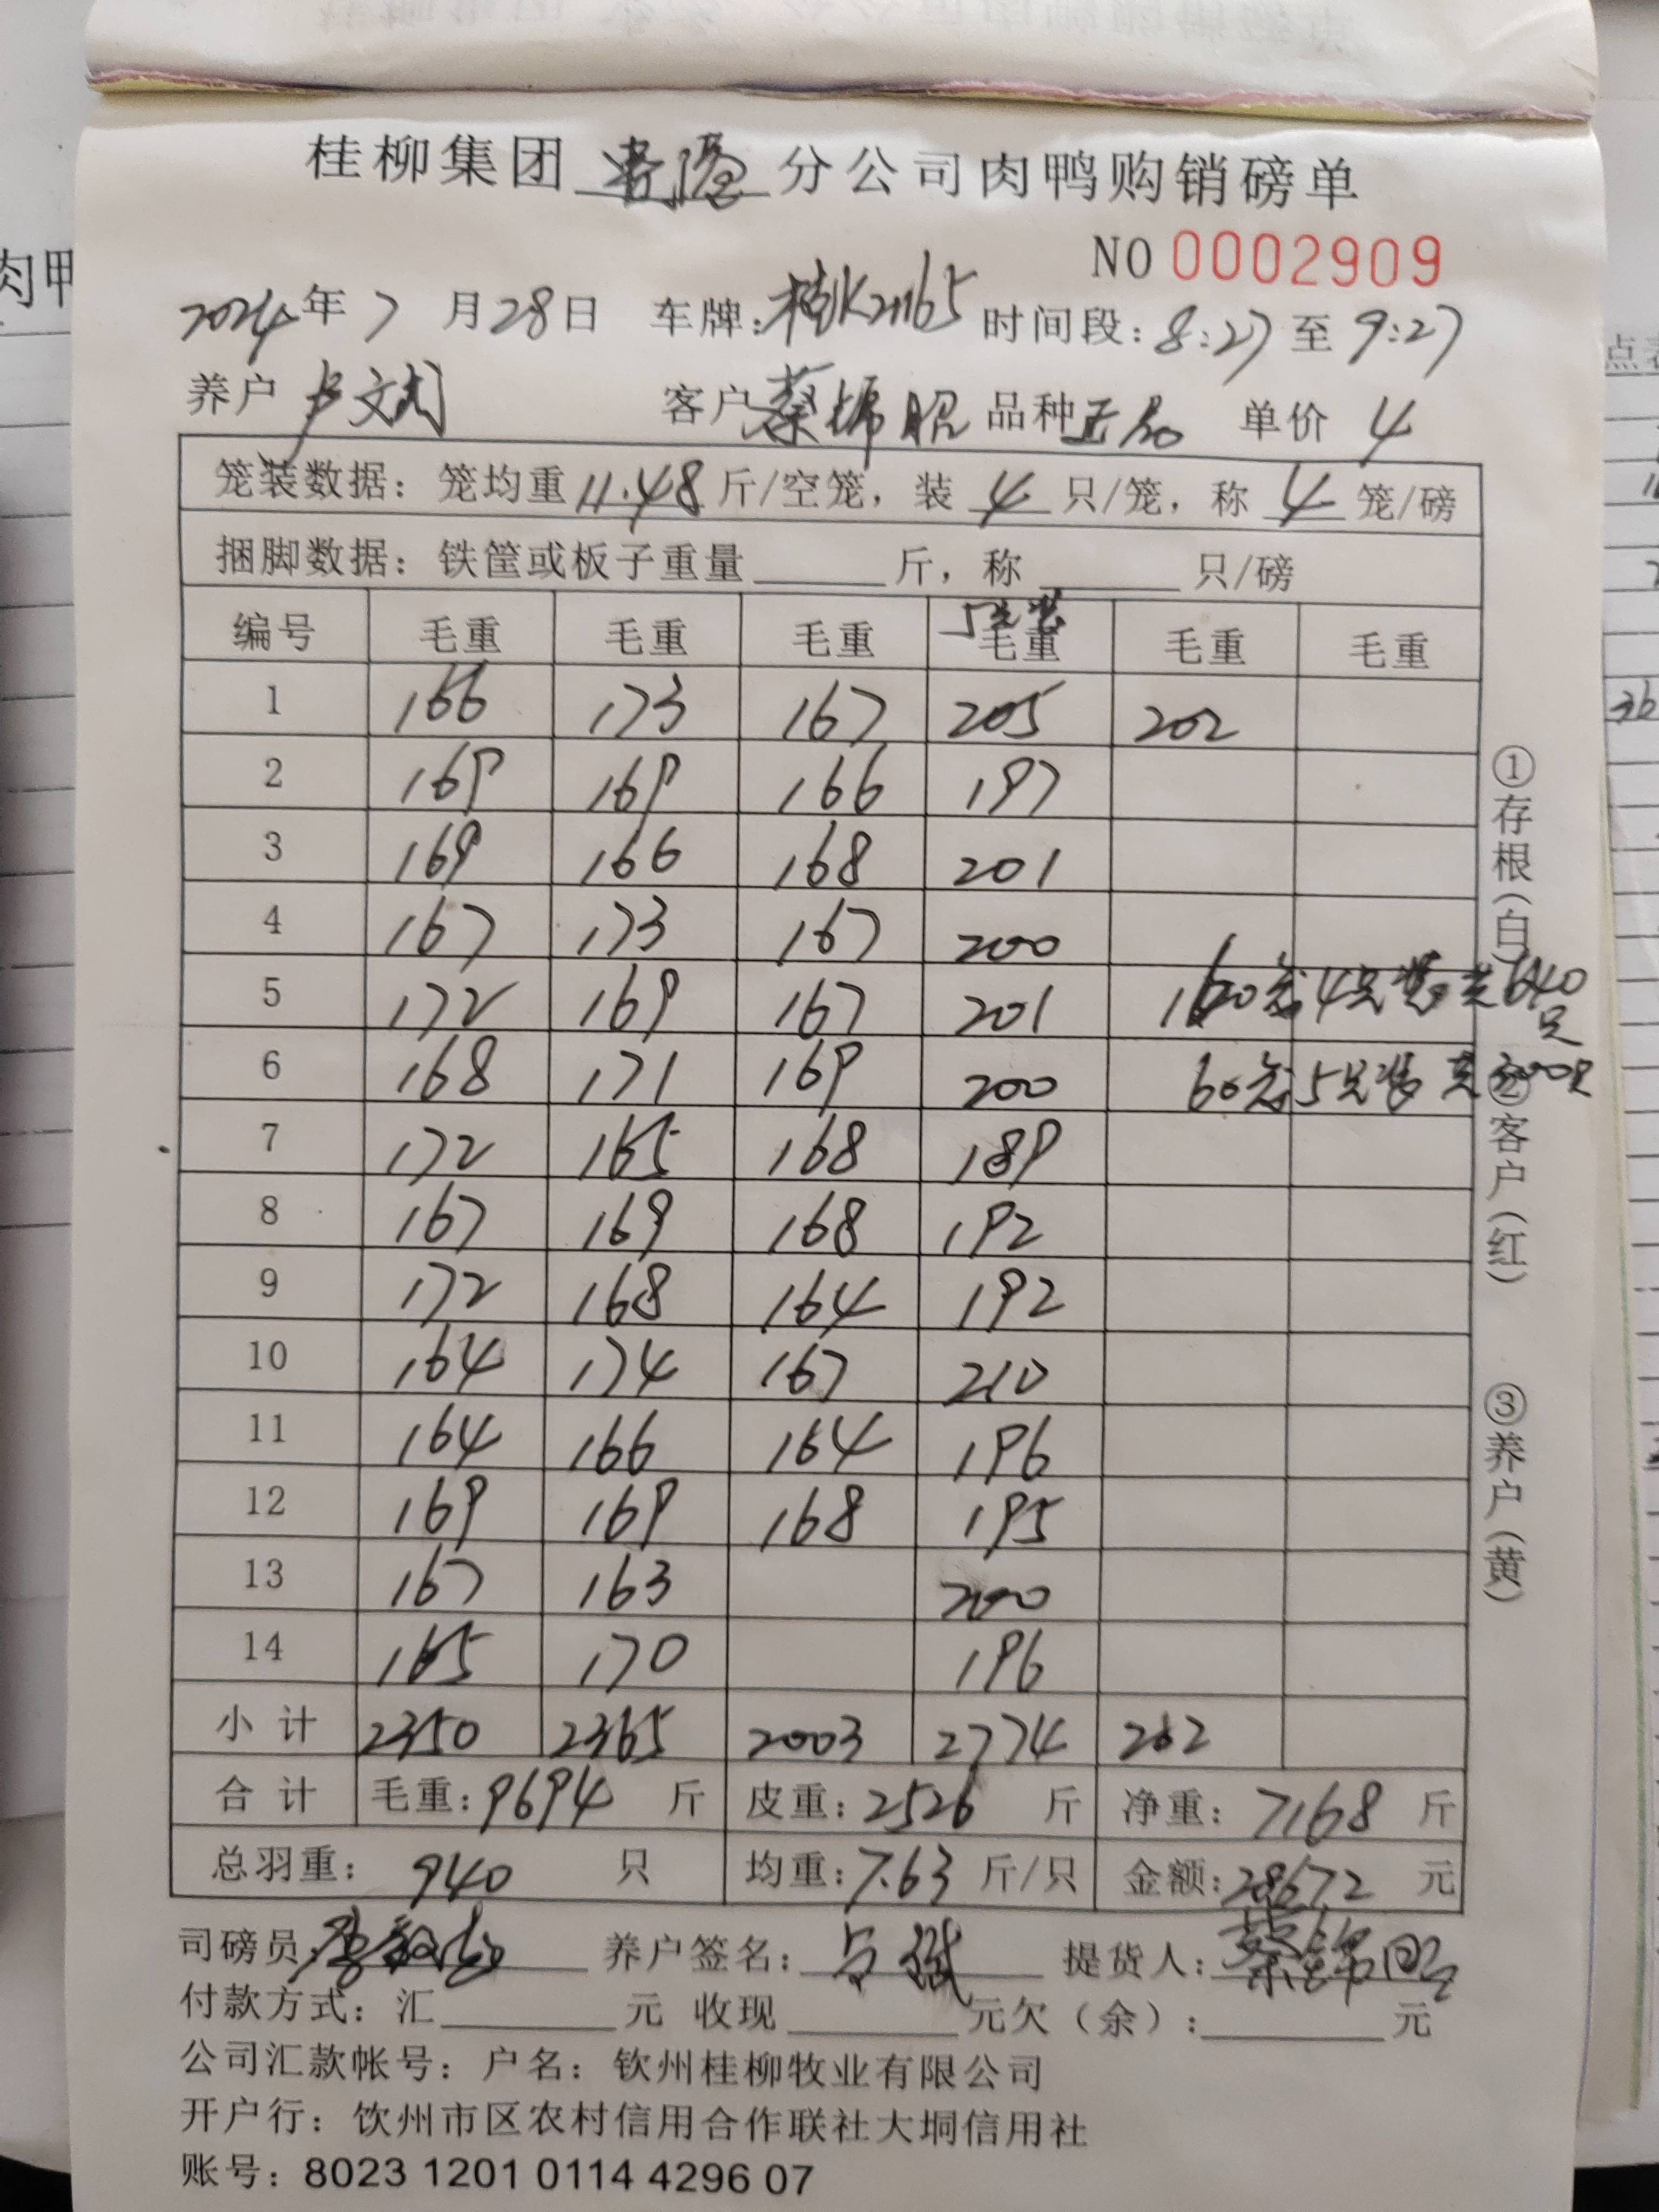 桂柳集团 贵港 分公司肉鸭购销磅单
NO 0002909
2024年 7 月28日 车牌:桂K21165 时间段:8:27至9:27
养户 卢文斌 客户 蔡锦昭 品种正品 单价 4
笼装数据：笼均重11.48斤/空笼，装 4 只/笼，称 4 笼/磅
捆脚数据：铁筐或板子重量 斤，称 只/磅
5只装
编号 毛重 毛重 毛重 毛重 毛重 毛重
1 166 173 167 205 202
2 169 169 166 197
3 169 166 168 201
4 167 173 167 200
5 172 169 167 201 160笼4只装共640只
6 168 171 169 200 60笼5只装共300只
7 172 165 168 189
8 167 169 168 192
9 172 168 164 192
10 164 174 167 210
11 164 166 164 196
12 169 169 168 195
13 167 163 200
14 165 170 196
小计 2350 2365 2003 2774 202
合计 毛重:9694 斤 皮重:2526 斤 净重:7168 斤
总羽重: 940 只 均重:7.63 斤/只 金额:28672 元
司磅员: 养户签名: 提货人:蔡锦昭
付款方式：汇 元 收现 元欠（余）: 元
公司汇款帐号：户名：钦州桂柳牧业有限公司
开户行：饮州市区农村信用合作联社大垌信用社
账号：8023 1201 0114 4296 07
①存根(白)
②客户(红)
③养户(黄)
肉鸭